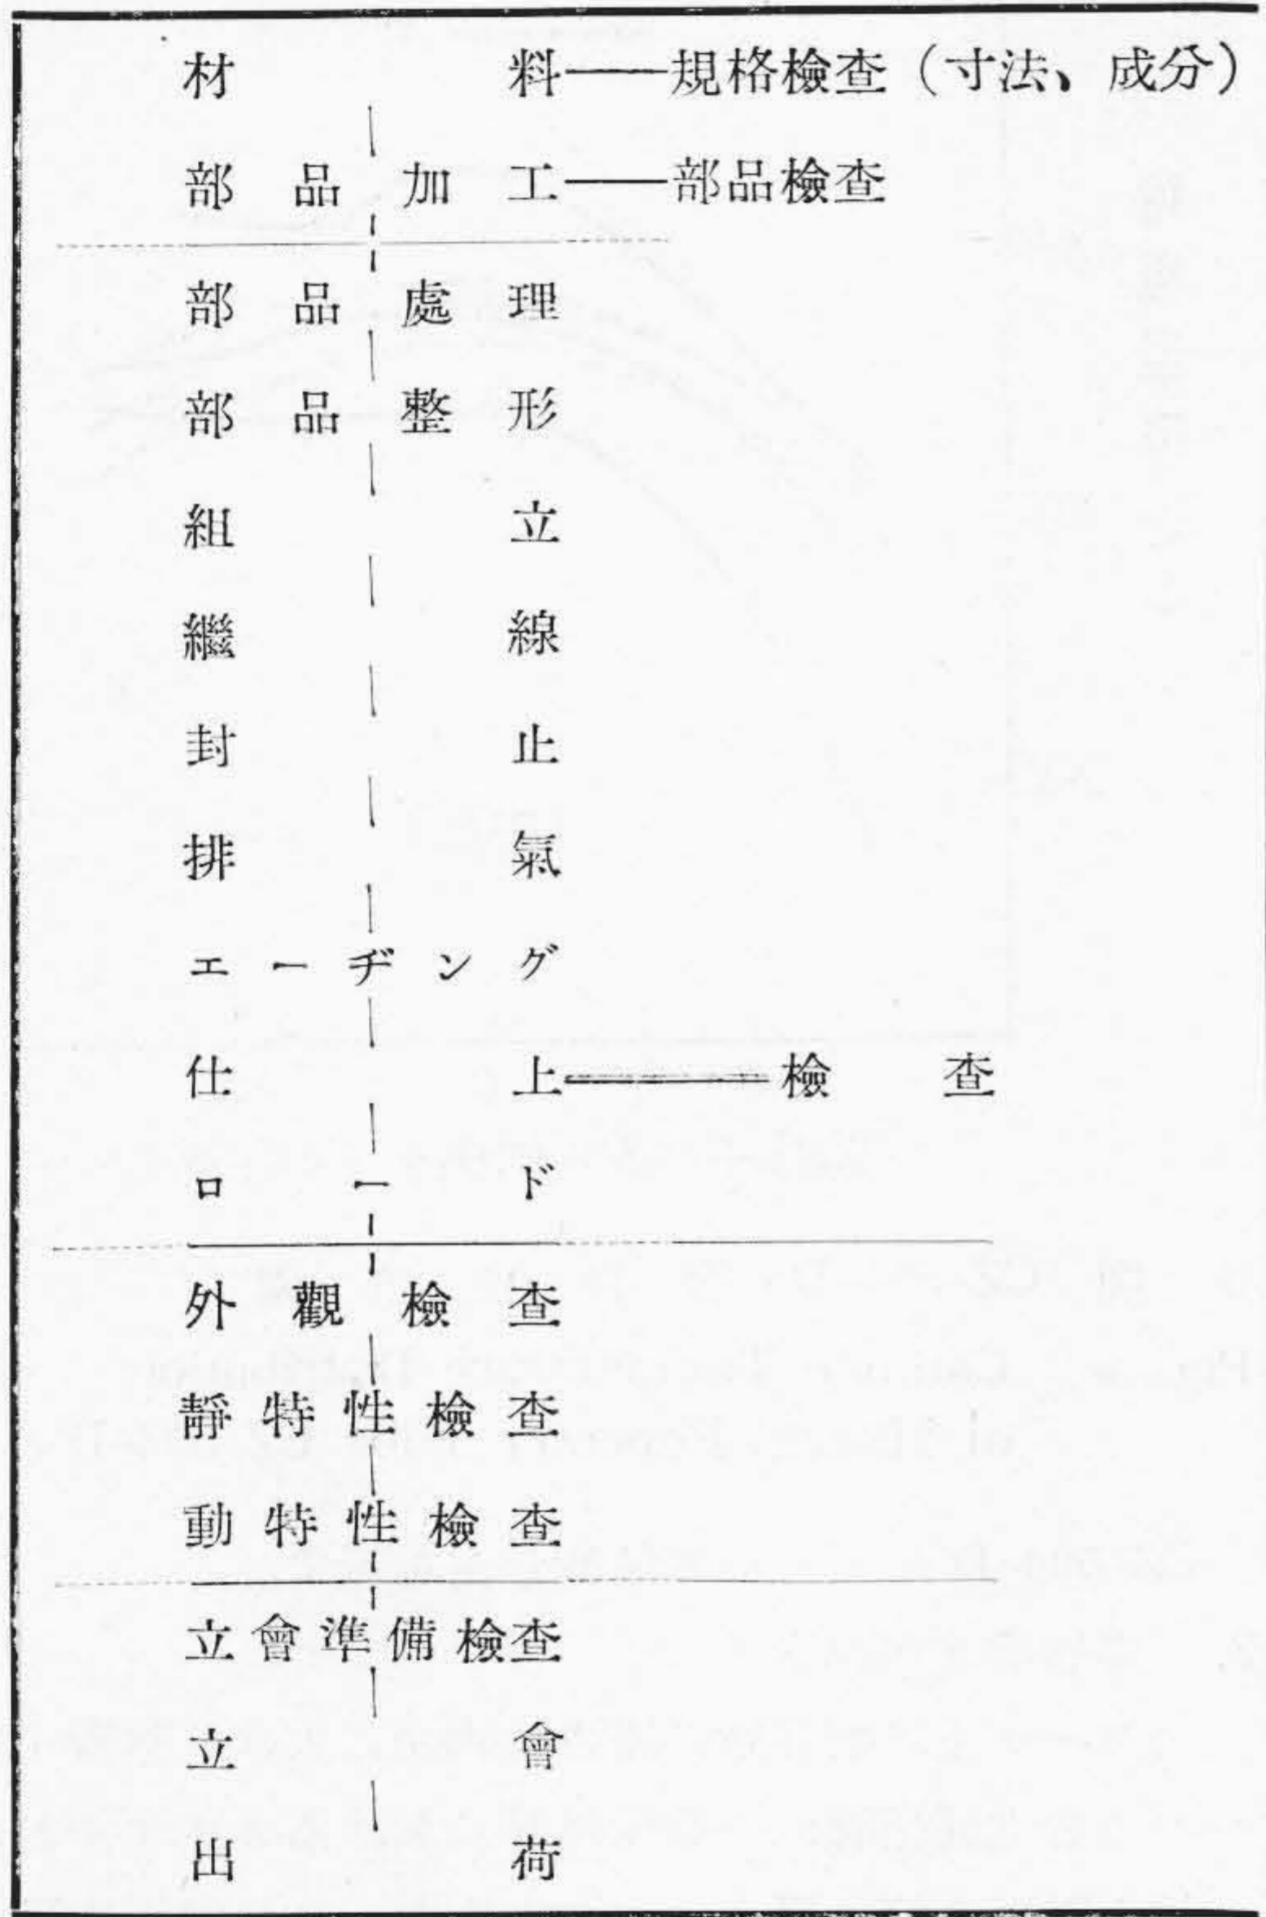 材料——規格檢査(寸法、成分)
部品加工——部品檢査
部品處理
部品整形
組立
繼線
封止
排氣
エーヂング
仕上——檢査
ロード
外觀檢査
靜特性檢査
動特性檢査
立會準備檢査
立會
出荷